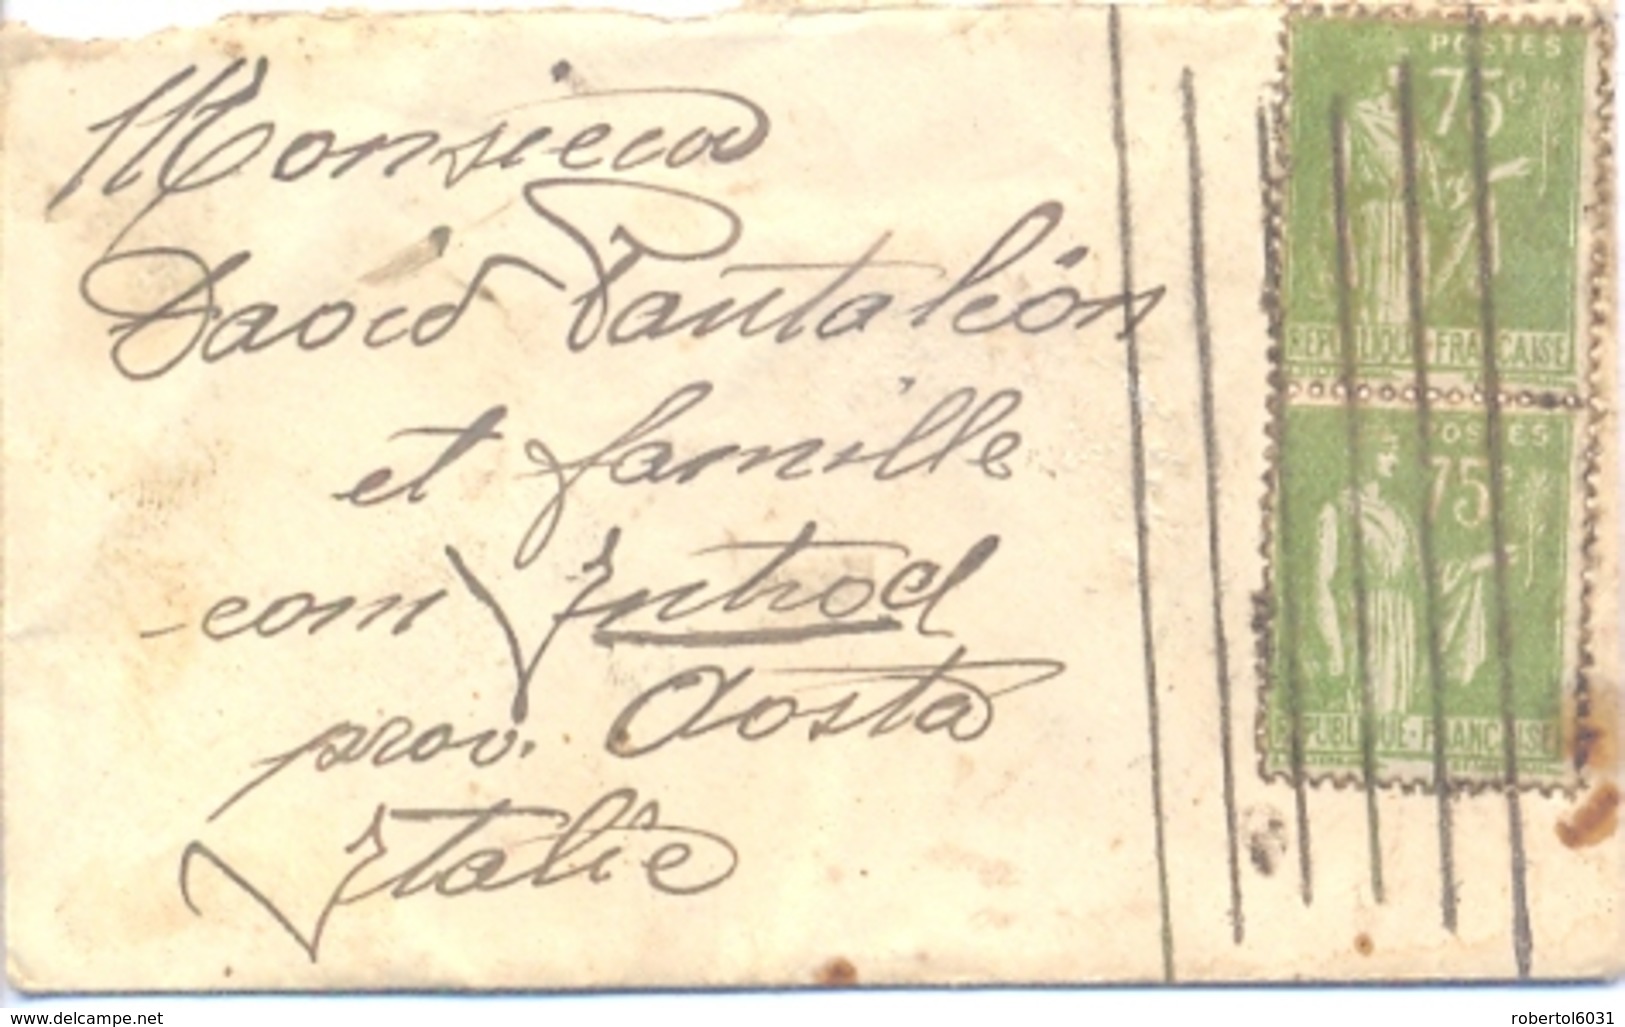 Monsieur
David Pantaléon
et famille
com Introd
prov. Aosta
Italie
POSTES
75c
REPUBLIQUE-FRANÇAISE
POSTES
75c
REPUBLIQUE-FRANÇAISE
www.delcampe.net
robertol6031